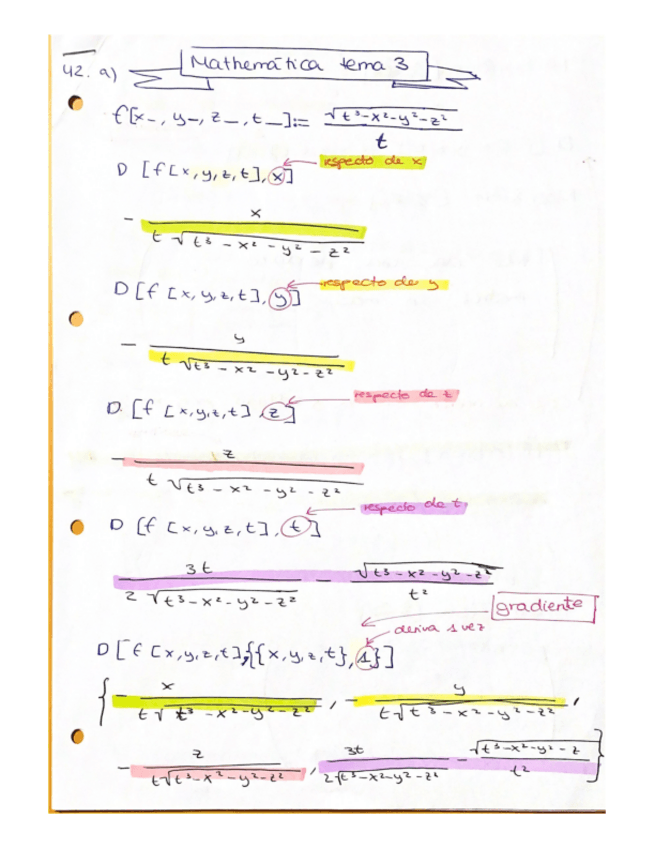 42. a) Mathematica tema 3
f[x_, y_, z_, t_]:= √(t³-x²-y²-z²) / t
respecto de x
D [f[x,y,z,t],x]
- x / (t √(t³ - x² - y² - z²))
D[f [x,y,z,t],y] respecto de y
- y / (t √(t³ - x² - y² - z²))
respecto de z
D [f [x,y,z,t],z]
- z / (t √(t³ - x² - y² - z²))
respecto de t
D [f [x,y,z,t],t]
3t / (2 √(t³-x²-y²-z²)) - √(t³-x²-y²-z²) / t²
gradiente
deriva 1 vez
D[f [x,y,z,t],{{x,y,z,t},1}]
{- x / (t √(t³-x²-y²-z²)), - y / (t √(t³-x²-y²-z²)),
- z / (t√(t³-x²-y²-z²)), 3t / (2√(t³-x²-y²-z²)) - √(t³-x²-y²-z) / t²}